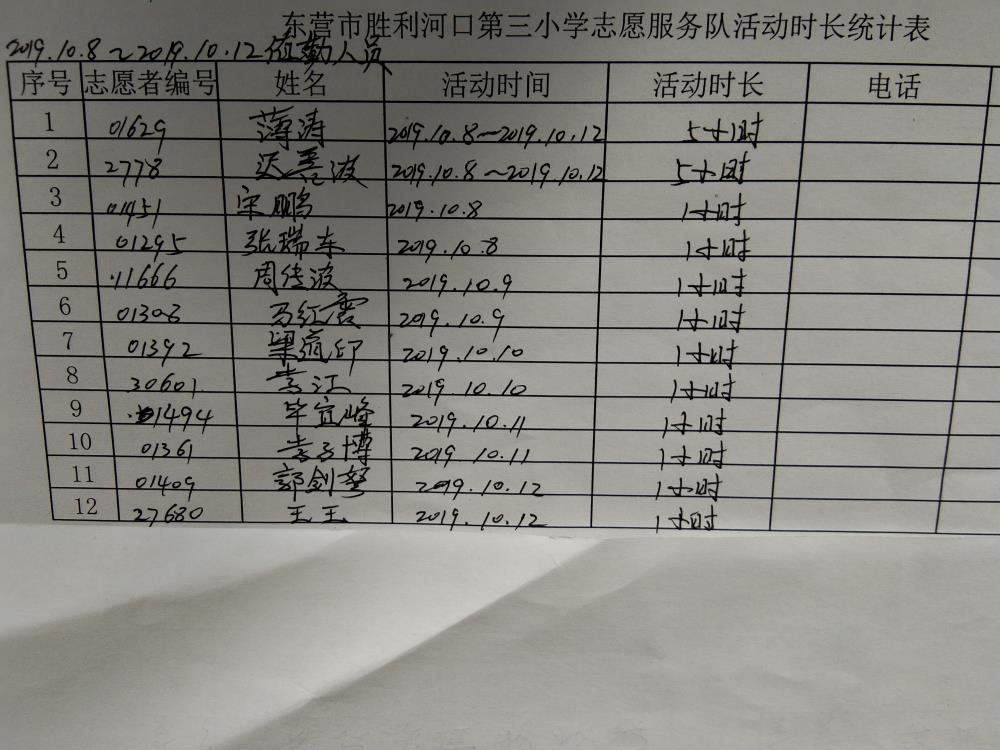 东营市胜利河口第三小学志愿服务队活动时长统计表
2019.10.8～2019.10.12值勤人员
序号 志愿者编号 姓名 活动时间 活动时长 电话
1 01629 薄涛 2019.10.8～2019.10.12 5小时
2 2778 波 2019.10.8～2019.10.12 5小时
3 01451 宋鹏 2019.10.8 1小时
4 01295 张瑞东 2019.10.8 1小时
5 11666 周传波 2019.10.9 1小时
6 01308 马红震 2019.10.9 1小时
7 01392 梁印 2019.10.10 1小时
8 30601 江 2019.10.10 1小时
9 1494 毕宜峰 2019.10.11 1小时
10 01361 博 2019.10.11 1小时
11 01409 郭剑 2019.10.12 1小时
12 27680 王玉 2019.10.12 1小时